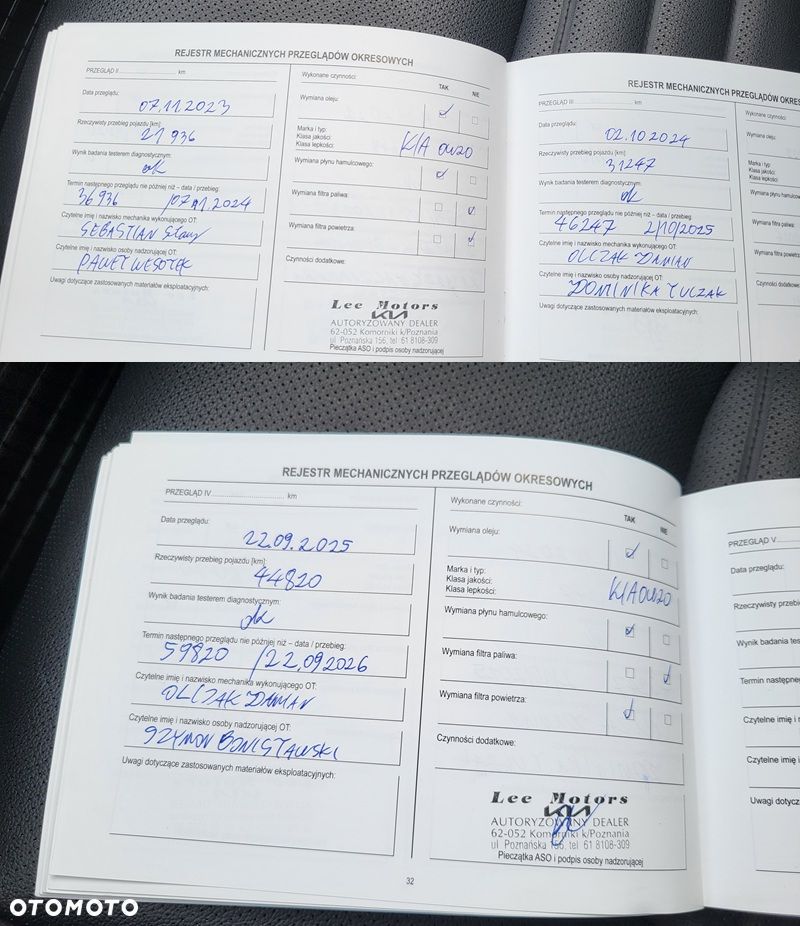 REJESTR MECHANICZNYCH PRZEGLĄDÓW OKRESOWYCH
PRZEGLĄD II ........ km
Data przeglądu:
07.11.2023
Rzeczywisty przebieg pojazdu [km]:
21 936
Wynik badania testerem diagnostycznym:
ok
Termin następnego przeglądu nie później niż – data / przebieg:
36936 /07.11.2024
Czytelne imię i nazwisko mechanika wykonującego OT:
SEBASTIAN
Czytelne imię i nazwisko osoby nadzorującej OT:
PAWEŁ WESOŁEK
Uwagi dotyczące zastosowanych materiałów eksploatacyjnych:
Wykonane czynności:
TAK NIE
Wymiana oleju:
Marka i typ:
Klasa jakości:
Klasa lepkości:
KIA 0W20
Wymiana płynu hamulcowego:
Wymiana filtra paliwa:
Wymiana filtra powietrza:
Czynności dodatkowe:
Lee Motors
KIA
AUTORYZOWANY DEALER
62-052 Komorniki k/Poznania
ul. Poznańska 156, tel 61 8108-309
Pieczątka ASO i podpis osoby nadzorującej
REJESTR MECHANICZNYCH PRZEGLĄDÓW OKRES
PRZEGLĄD III ........ km
Data przeglądu:
02.10.2024
Rzeczywisty przebieg pojazdu [km]:
31247
Wynik badania testerem diagnostycznym:
ok
Termin następnego przeglądu nie później niż – data / przebieg:
46247 2/10/2025
Czytelne imię i nazwisko mechanika wykonującego OT:
OLCZAK DAMIAN
Czytelne imię i nazwisko osoby nadzorującej OT:
DOMINIKA TUCZAK
Uwagi dotyczące zastosowanych materiałów eksploatacyjnych:
Wykonane czynności:
Wymiana oleju:
Marka i typ:
Klasa jakości:
Klasa lepkości:
Wymiana płynu hamulco
Wymiana filtra paliwa:
Wymiana filtra powietrz
Czynności dodatkowe:
REJESTR MECHANICZNYCH PRZEGLĄDÓW OKRESOWYCH
PRZEGLĄD IV ........ km
Data przeglądu:
22.09.2025
Rzeczywisty przebieg pojazdu [km]:
44820
Wynik badania testerem diagnostycznym:
ok
Termin następnego przeglądu nie później niż – data / przebieg:
59820 /22.092026
Czytelne imię i nazwisko mechanika wykonującego OT:
OLCZAK DAMIAN
Czytelne imię i nazwisko osoby nadzorującej OT:
SZYMON BONISŁAWSKI
Uwagi dotyczące zastosowanych materiałów eksploatacyjnych:
Wykonane czynności:
TAK NIE
Wymiana oleju:
Marka i typ:
Klasa jakości:
Klasa lepkości:
KIA 0W20
Wymiana płynu hamulcowego:
Wymiana filtra paliwa:
Wymiana filtra powietrza:
Czynności dodatkowe:
Lee Motors
KIA
AUTORYZOWANY DEALER
62-052 Komorniki k/Poznania
ul. Poznańska 156, tel. 61 8108-309
Pieczątka ASO i podpis osoby nadzorującej
32
PRZEGLĄD V ........
Data przeglądu:
Rzeczywisty przebie
Wynik badania teste
Termin następnego
Czytelne imię i
Czytelne imię i
Uwagi dotycz
OTOMOTO